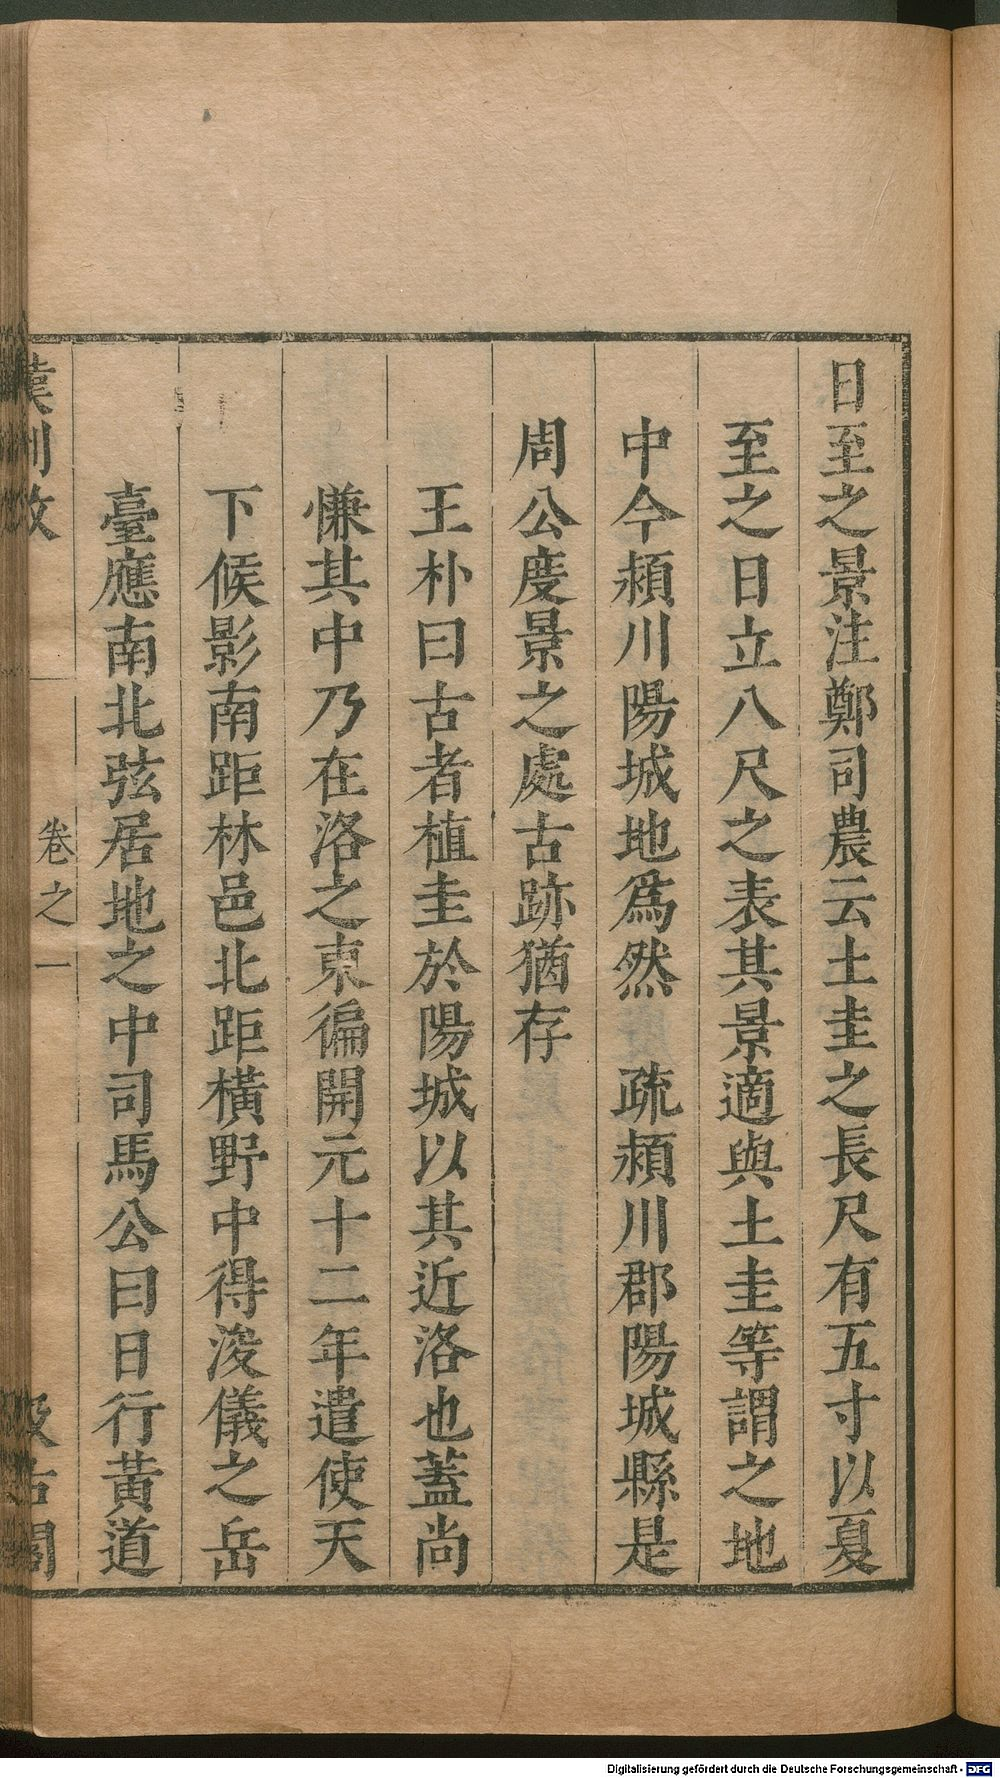 日至之景注鄭司農云土圭之長尺有五寸以夏
至之日立八尺之表其景適與土圭等謂之地
中今潁川陽城地爲然 疏潁川郡陽城縣是
周公度景之處古跡猶存
王朴曰古者植圭於陽城以其近洛也蓋尚
慊其中乃在洛之東偏開元十二年遣使天
下候影南距林邑北距橫野中得浚儀之岳
臺應南北弦居地之中司馬公曰日行黃道
卷之一
汲古閣
Digitalisierung gefördert durch die Deutsche Forschungsgemeinschaft - DFG